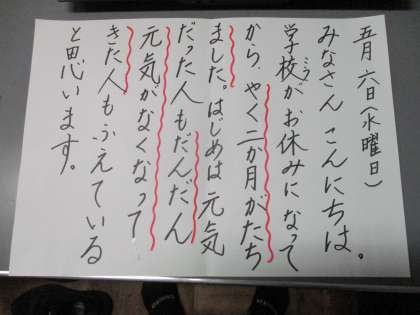 五月六日(水曜日)
みなさん こんにちは。
学校がお休みになって
から、やく二か月がたち
ました。はじめは元気
だった人もだんだん
元気がなくなって
きた人もふえている
と思います。